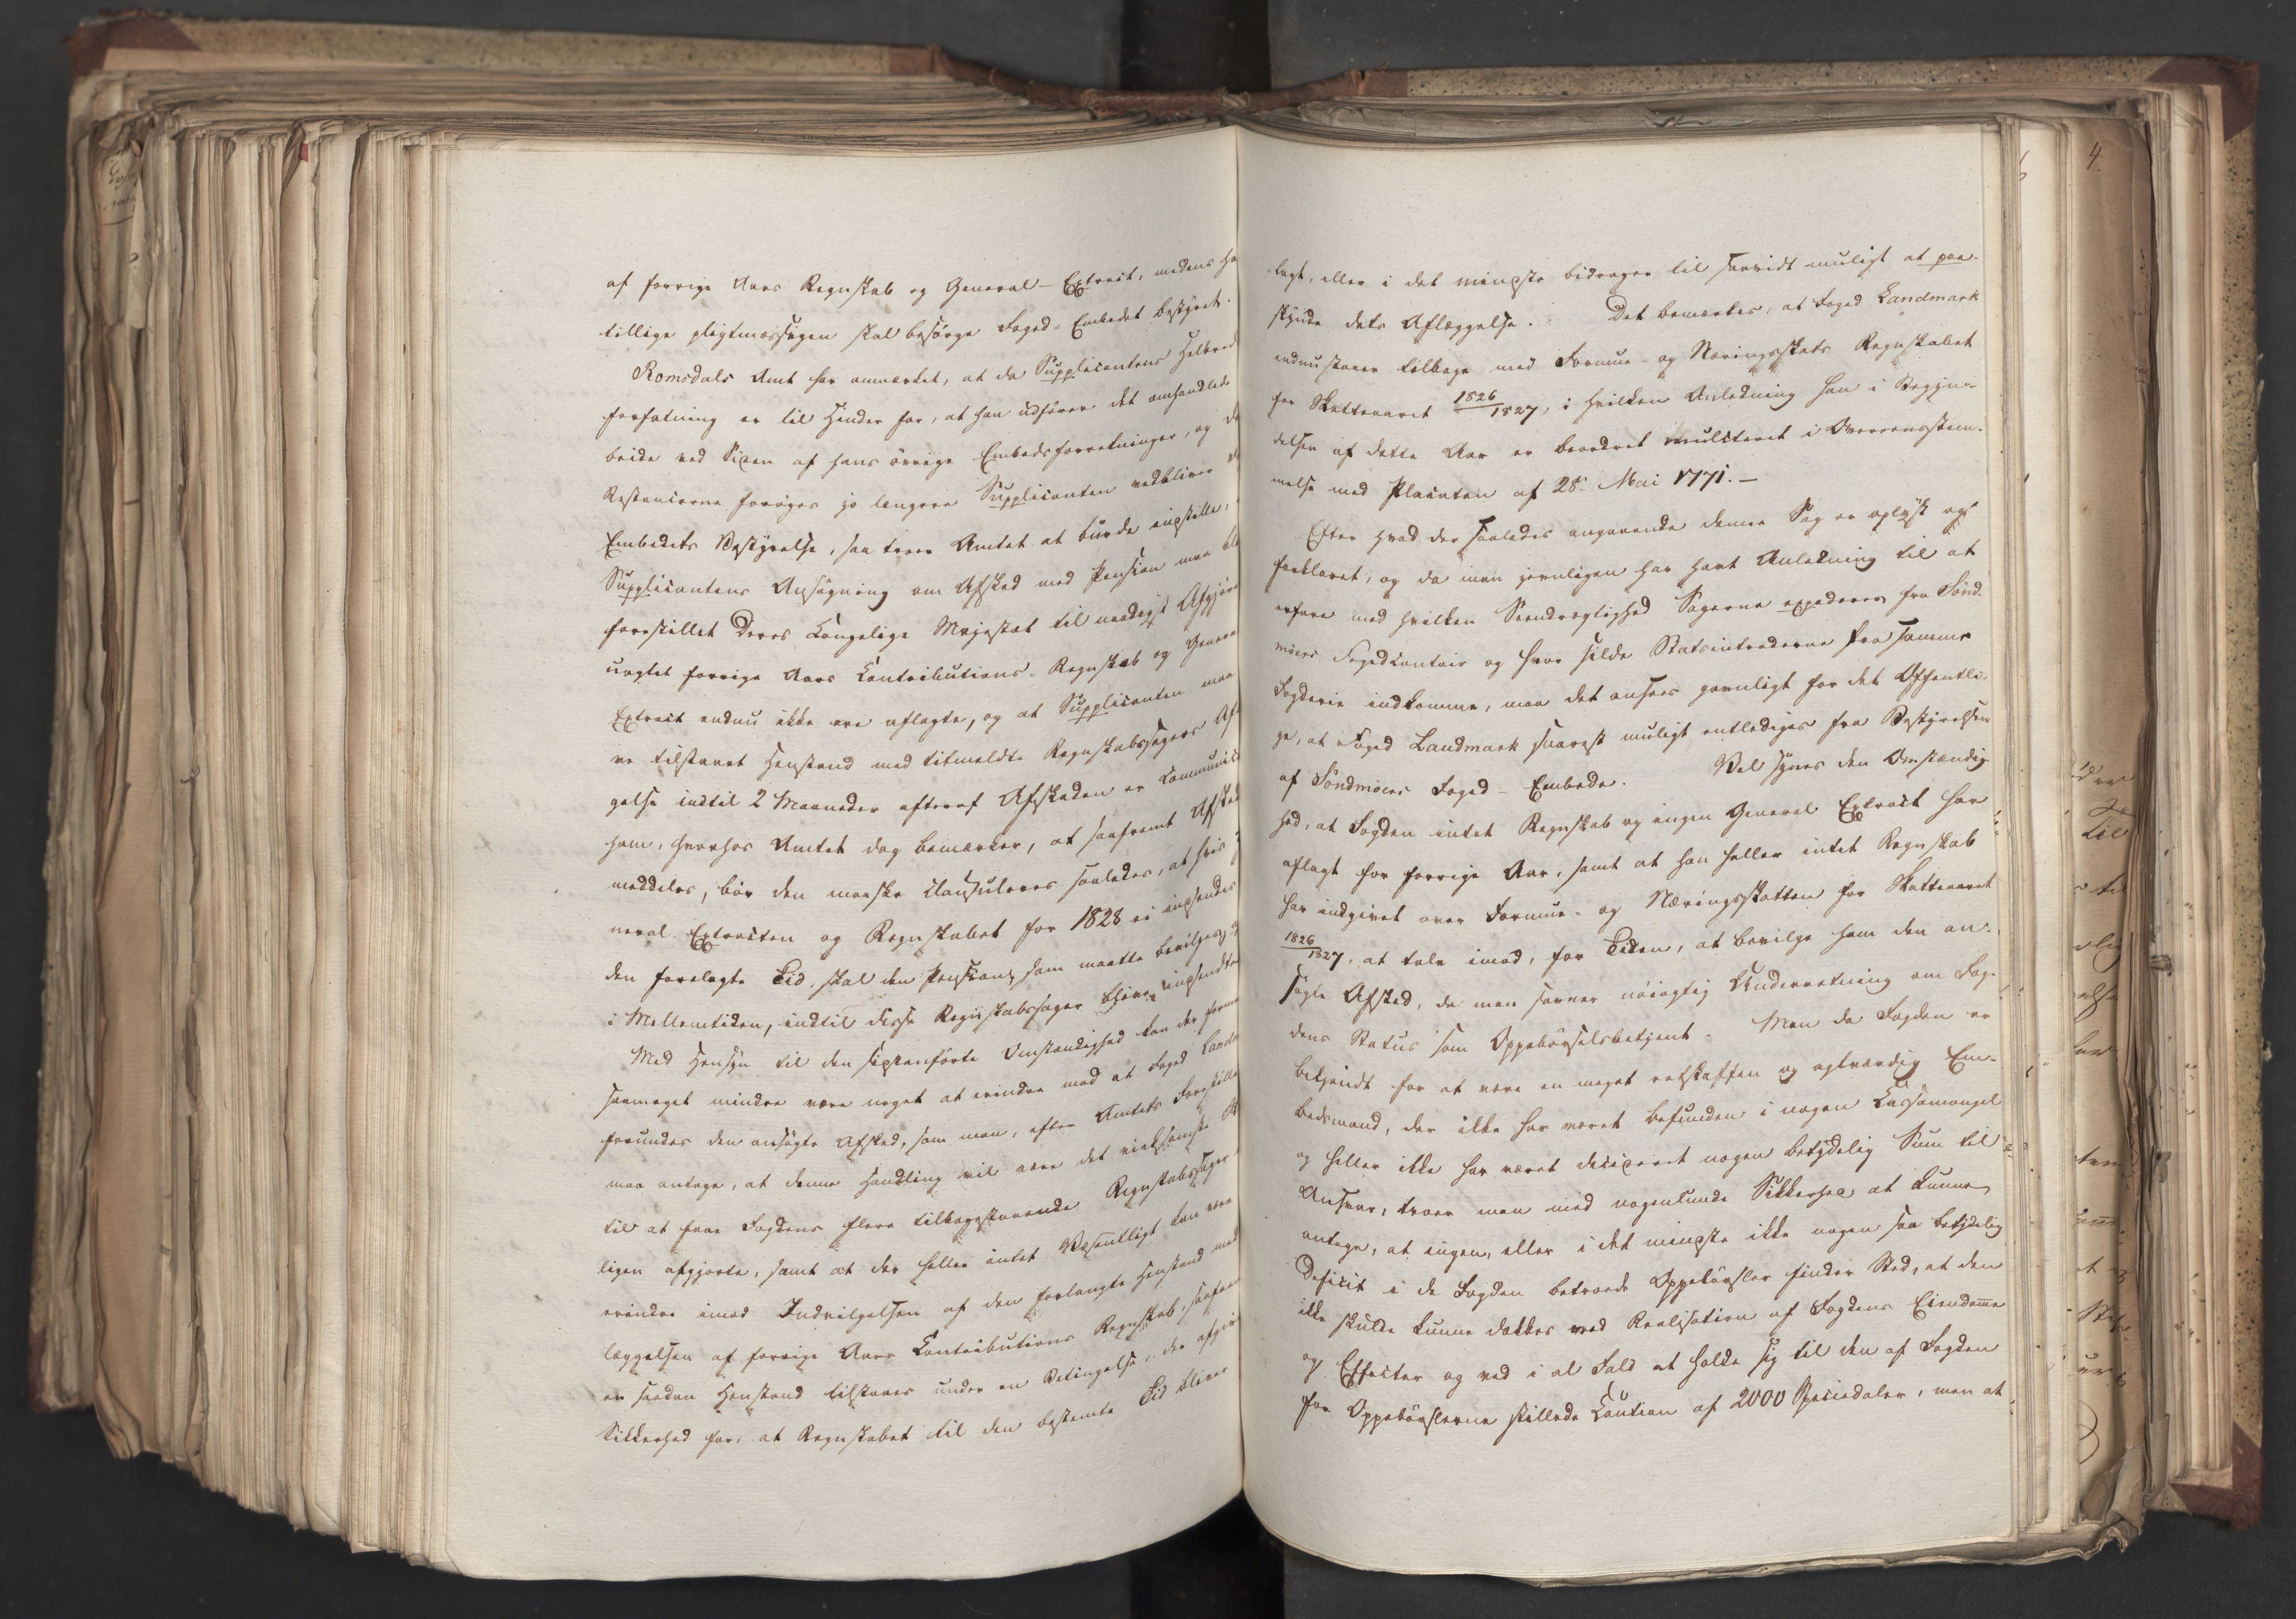 af forrige Aars Regnskab og General-Extract, medens ha
tillige pligtmæssigen skal besørge Foged-Embedet bestyret.
Romsdals Amt har anmærket, at da Supplicantens Helbred
forfatning er til Hinder for, at han udfører det omhandlede
beide ved Siden af hans øvrige Embedsforretninger, og da
Restancerne forøges jo længere Supplicanten vedbliver
Embedets Bestyrelse, saa troer Amtet at burde indstille,
Supplicantens Ansøgning om Afsked med Pension maa bli
forestillet Deres Kongelige Majestæt til naadigst Afgjøre
uagtet forrige Aars Contributions-Regnskab og Genera
Extract endnu ikke ere aflagte, og at Supplicanten maa
ve tilstaaet Henstand med titmeldte Regnskabssagers Af
gelse indtil 2 Maaneder efterat Afskeden er Communice
ham, hvorhos Amtet dog bemærker, at saafremt Afsked
meddeles, bør den maaske clausuleres saaledes, at hvis
neral Extracten og Regnskabet for 1828 ei indsendes
den forelagte Tid, skal den Pension, som maatte bevilges,
i Mellemtiden, indtil disse Regnskabssager blive indsendte
Med Hensyn til den sidstanførte Omstændighed kan der forme
saameget mindre være noget at erindre mod at Foged Landm
forundes den ansøgte Afsked, som man, efter Amtets Forestille
maa antage, at denne Handling vil være det virksomste
til at faae Fogdens flere tilbagestaaende Regnskabssager
ligen afgjorte, samt at der heller intet Væsentligt kan være
erindre imod Indvilgelsen af den forlangte Henstand med
læggelsen af forrige Aars Contributions Regnskab, saafre
en saadan Henstand tilstaaes under en Betingelse, der afgiv
Sikkerhed for, at Regnskabet til den bestemte Tid bliver
lagt, eller i det mindste bidrager til saavidt muligt at paa-
skynde dets Aflæggelse. Det bemærkes, at Foged Landmark
endnu staaer tilbage med Formue- og Næringsskats Regnskabet
for Skatteaaret 1826/1827, i hvilken Anledning han i Begyn-
delsen af dette Aar er beordret mulcteret i Overeensstem-
melse med Placaten af 28. Mai 1771.-
Efter hvad der saaledes angaaende denne Sag er oplyst og
forklaret, og da man jevnligen har havt Anledning til at
erfare med hvilken Seendrægtighed Sagerne expederes fra Sønd-
møers Fogedcontoir og hvor silde Statsintraderne fra samme
Fogderie indkomme, maa det ansees gavnligt for det Offentli-
ge, at Foged Landmark snarest muligt entlediges fra Bestyrelsen
af Søndmøers Foged-Embede. Vel synes den Omstændig-
hed, at Fogden intet Regnskab og ingen General Extract har
aflagt for forrige Aar, samt at han heller intet Regnskab
har indgivet over Formue- og Næringsskatten for Skatteaaret
1826/1827, at tale imod, for Tiden, at bevilge ham den an-
søgte Afsked, da man savner nøiagtig Underretning om Fog-
dens Status som Oppebørselsbetjent. Men da Fogden er
bekjendt for at være en meget retskaffen og agtværdig Em-
bedsmand, der ikke har været befunden i nogen Cassamangel
og heller ikke har været decideret nogen betydelig Sum til
Ansvar, troer man med nogenlunde Sikkerhed at kunne
antage, at ingen, eller i det mindste ikke nogen saa betydelig
Deficit i de Fogden betroede Oppebørsler finder Sted, at den
ikke skulde kunne dækkes ved Realisation af Fogdens Eiendomme
og Effecter og ved i al Fald at holde sig til den af Fogden
for Oppebørslerne stillede Caution af 2000 Speciedaler, men at
4.